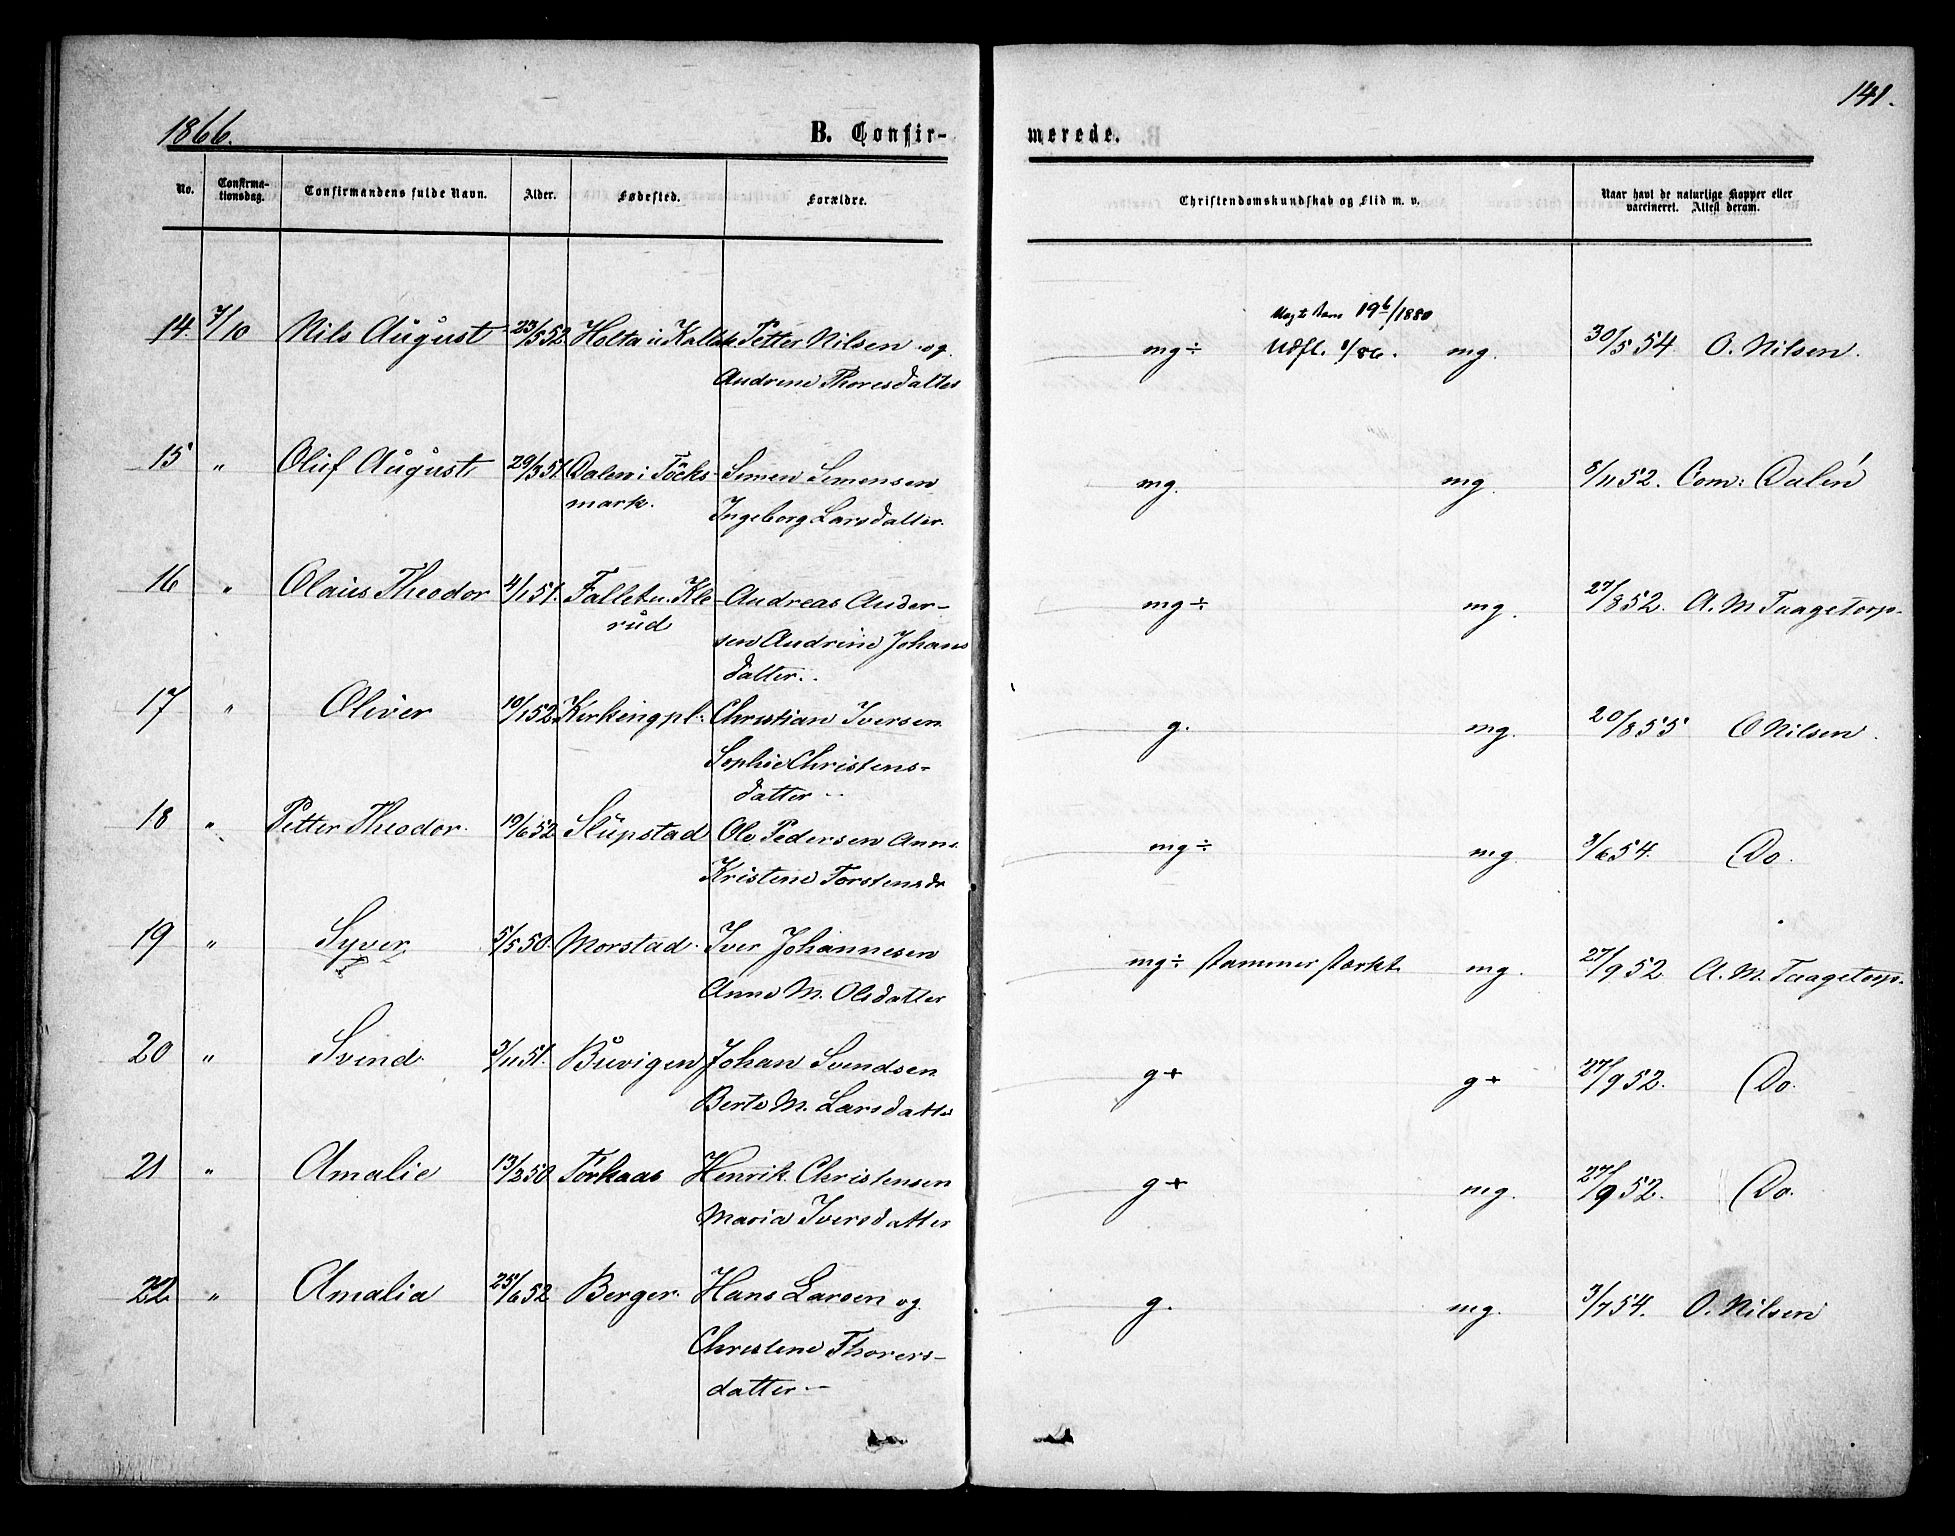 141.
1866.
B. Confir-
merede.
No.
Confirma-
tionsdag.
Confirmandens fulde Navn.
Alder.
Fødested.
Forældre.
Christendomskundskab og Flid m. v.
Naar havt de naturlige Kopper eller
vaccineret. Attest derom.
14. 7/10 Nils August 23/5 52. Holta u Petter Nilsen og mg÷ Udfl. mg. 30/5 54 O. Nilsen.
19 6/1880
Andrine Thoresdatter
15 " Oluf August 29/3 51. Dalen i Töcks- Simen Simensen mg. mg. 8/11 52. Com: Dalén
mark. Ingeborg Larsdatter.
16 " Olaus Theodor 4/1 51. Fallet u. Kle- Andreas Ander- mg÷ mg. 27/8 52. A. M. Taagetorp.
rud sen Andrine Johans
datter..
17 " Oliver 10/1 52. Kirkeng pl: Christian Iversen g. mg. 20/8 55 O Nilsen.
Sophie Christens-
datter
18 " Petter Theodor. 19/6 52 Slupstad Ole Pedersen Anne mg÷ mg. 3/6 54. Do.
Kristine Torstensdr
19 " Syver 5/5 50. Morstad. Iver Johannesen mg÷ stammer stærkt mg. 27/9 52. A. M. Taagetorp.
Anne M. Olsdatter
20 " Svend. 3/11 51. Buvigen Johan Svendsen g+ g+ 27/9 52. Do.
Berte M. Larsdatter
21 " Amalie 13/2 50 Torkaas Henrik Christensen g+ mg. 27/9 52. Do.
Maria Iversdatter
22 " Amalia 25/6 52 Berger. Hans Larsen og g. mg. 3/7 54. O. Nilsen
Christine Thorers-
datter.